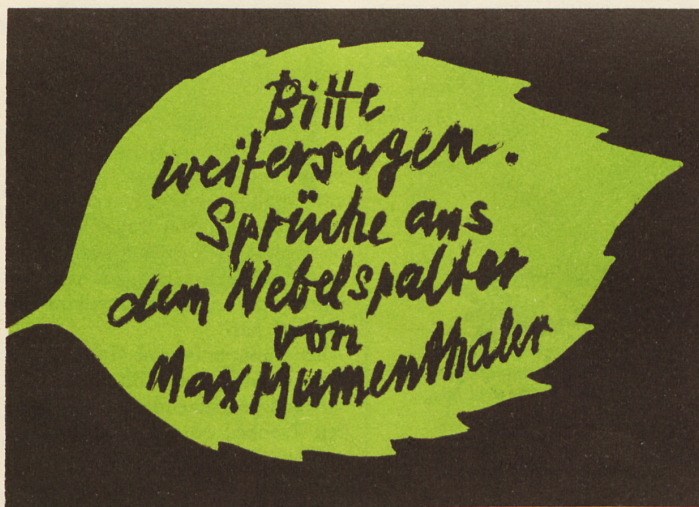 Bitte
weitersagen.
Sprüche aus
dem Nebelspalter
von
Max Mumenthaler